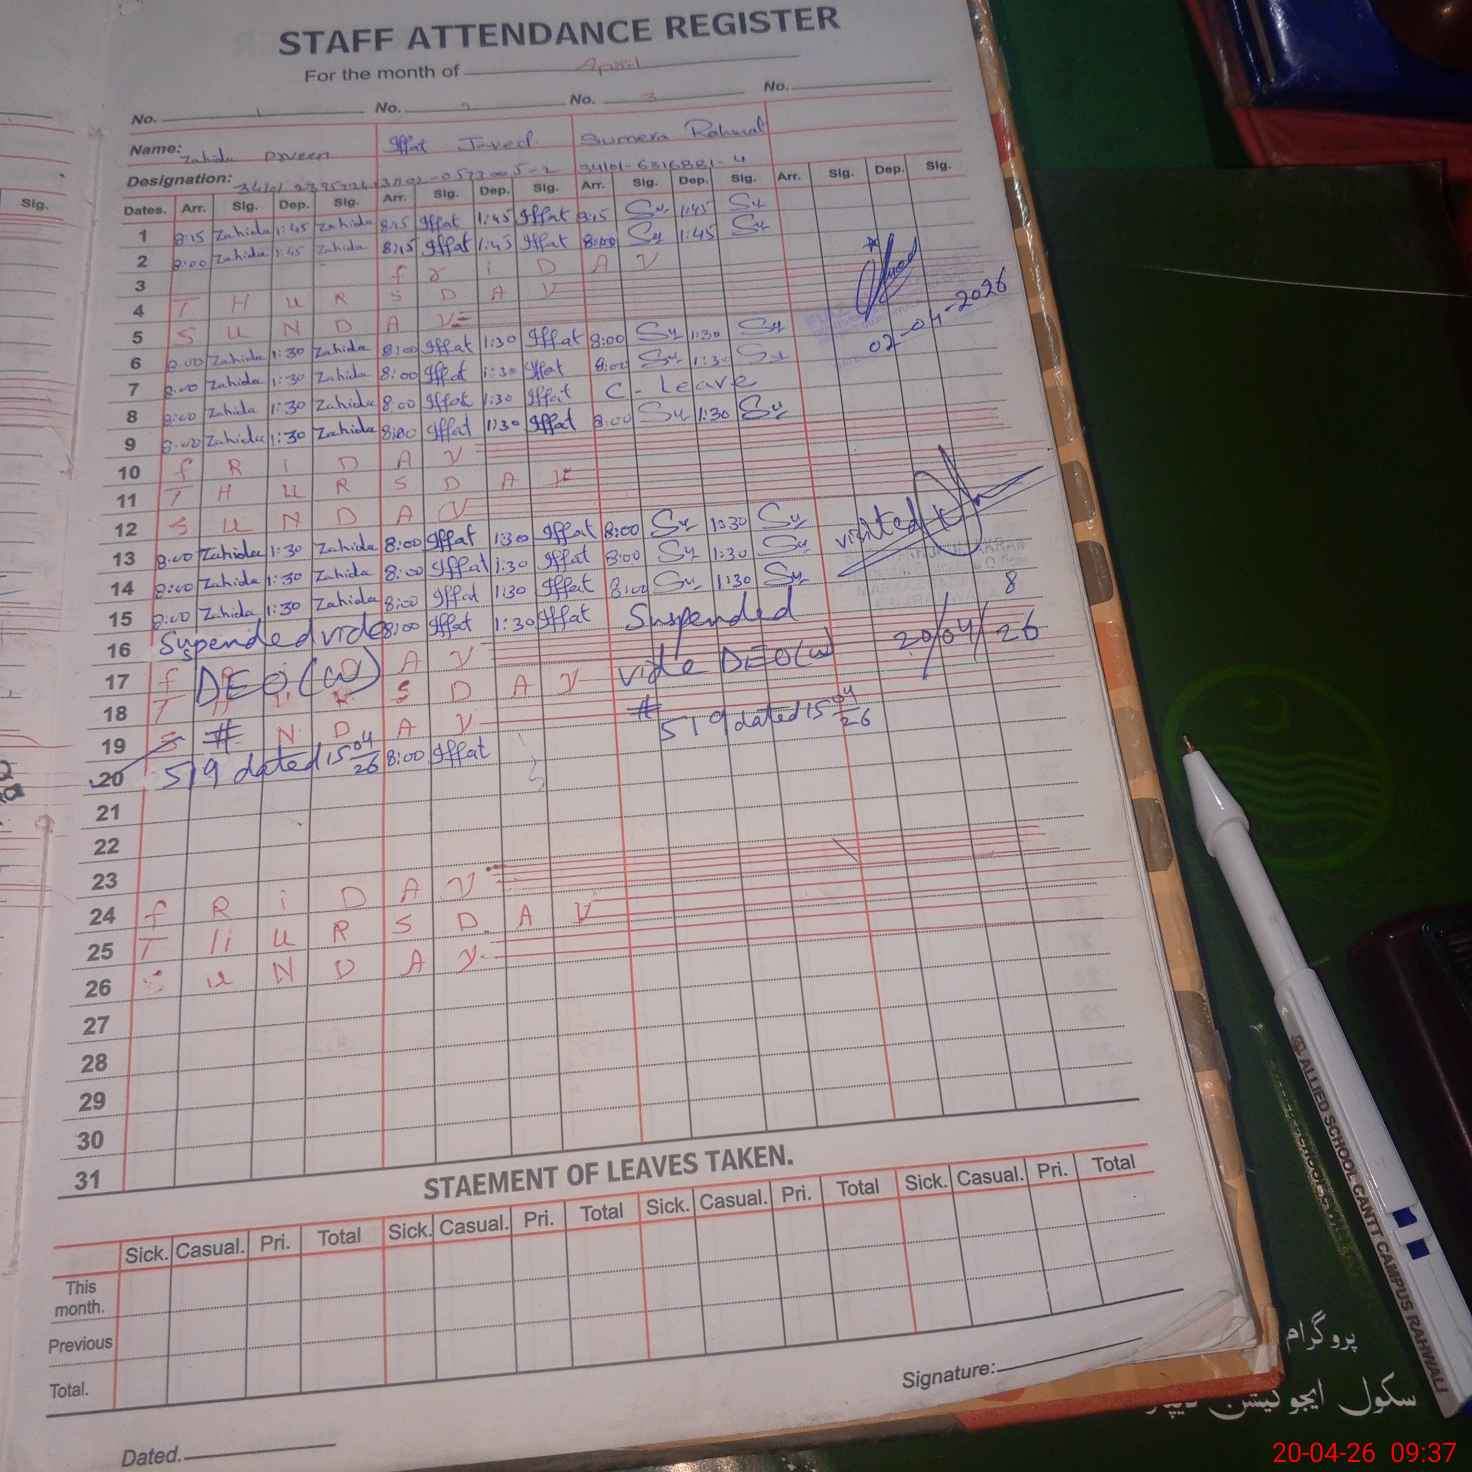 STAFF ATTENDANCE REGISTER
For the month of April
No. 1 No. 2 No. 3 No.
Name: Zahida Iffat Javed Sumera Rahmat
Designation: 34101-6316881-4
Sig.
Dates. Arr. Sig. Dep. Sig. Arr. Sig. Dep. Sig. Arr. Sig. Dep. Sig. Arr. Sig. Dep. Sig.
1 8:15 Zahida 1:45 Zahida 8:15 Iffat 1:45 Iffat 8:15 Su 1:45 Su
2 8:00 Zahida 1:45 Zahida 8:15 Iffat 1:45 Iffat 8:00 Su 1:45 Su
3 f r i D A Y
4 T H U R S D A Y
5 S U N D A Y
6 8:00 Zahida 1:30 Zahida 8:00 Iffat 1:30 Iffat 8:00 Su 1:30 Su
02-04-2026
7 8:00 Zahida 1:30 Zahida 8:00 Iffat 1:30 Iffat 8:00 Su 1:30 Su
8 8:00 Zahida 1:30 Zahida 8:00 Iffat 1:30 Iffat C - Leave
9 8:00 Zahida 1:30 Zahida 8:00 Iffat 1:30 Iffat 8:00 Su 1:30 Su
10 f R i D A Y
11 T H U R S D A Y
12 S U N D A Y
13 8:00 Zahida 1:30 Zahida 8:00 Iffat 1:30 Iffat 8:00 Su 1:30 Su
visited
14 8:00 Zahida 1:30 Zahida 8:00 Iffat 1:30 Iffat 8:00 Su 1:30 Su
15 8:00 Zahida 1:30 Zahida 8:00 Iffat 1:30 Iffat 8:00 Su 1:30 Su
8
16 Suspended vide 8:00 Iffat 1:30 Iffat Suspended
20/04/26
17 f DEO (W) A Y vide DEO (W)
18 T S D A Y #
19 S # N D A Y 519 dated 15 04/26
20 519 dated 15 04/26 8:00 Iffat
21
22
23
24 f R i D A Y
25 T H U R S D A Y
26 S U N D A Y
27
28
29
30
31
STAEMENT OF LEAVES TAKEN.
Sick. Casual. Pri. Total Sick. Casual. Pri. Total Sick. Casual. Pri. Total Sick. Casual. Pri. Total
This month.
Previous
Total.
Signature:
Dated.
ALLIED SCHOOL CANTT CAMPUS RAHWALI
پروگرام
سکول ایجوکیشن
20-04-26 09:37